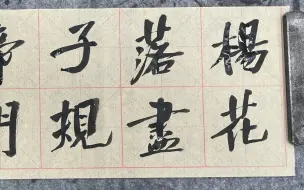 楊花
落盡
子規